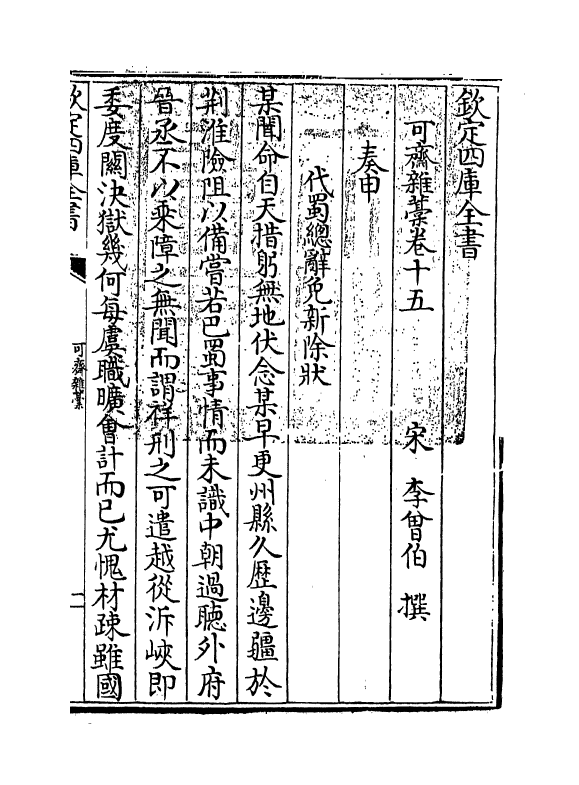 欽定四庫全書
可齋雜藁卷十五
宋 李曾伯 撰
奏申
代蜀總辭免新除狀
某聞命自天措躬無地伏念某早更州縣久歷邊疆於
荆淮險阻以備嘗若巴蜀事情而未識中朝過聽外府
晉丞不以乘障之無聞而謂祥刑之可遣越從泝峽即
委度關決獄幾何每虞職曠會計而已尤愧材疎雖國
欽定四庫全書
可齋雜藁